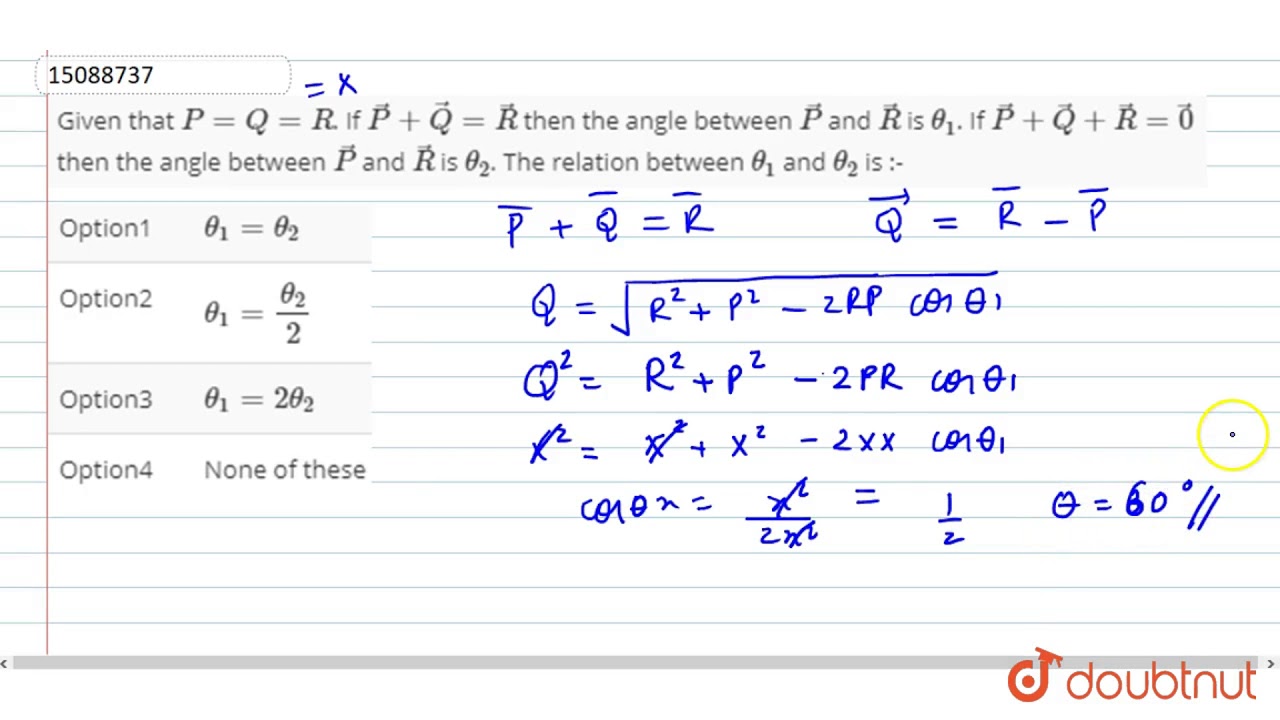 15088737
= x
Given that P = Q = R. If P⃗ + Q⃗ = R⃗ then the angle between P⃗ and R⃗ is θ₁. If P⃗ + Q⃗ + R⃗ = 0⃗
then the angle between P⃗ and R⃗ is θ₂. The relation between θ₁ and θ₂ is :-
Option1 θ₁ = θ₂
Option2 θ₁ = θ₂/2
Option3 θ₁ = 2θ₂
Option4 None of these
P̅ + Q̅ = R̅ Q⃗ = R̅ − P̅
Q = √(R² + P² − 2RP cos θ₁)
Q² = R² + P² − 2PR cos θ₁
x² = x² + x² − 2xx cos θ₁
cos θ x = x²/2x² = 1/2 θ = 60° //
doubtnut